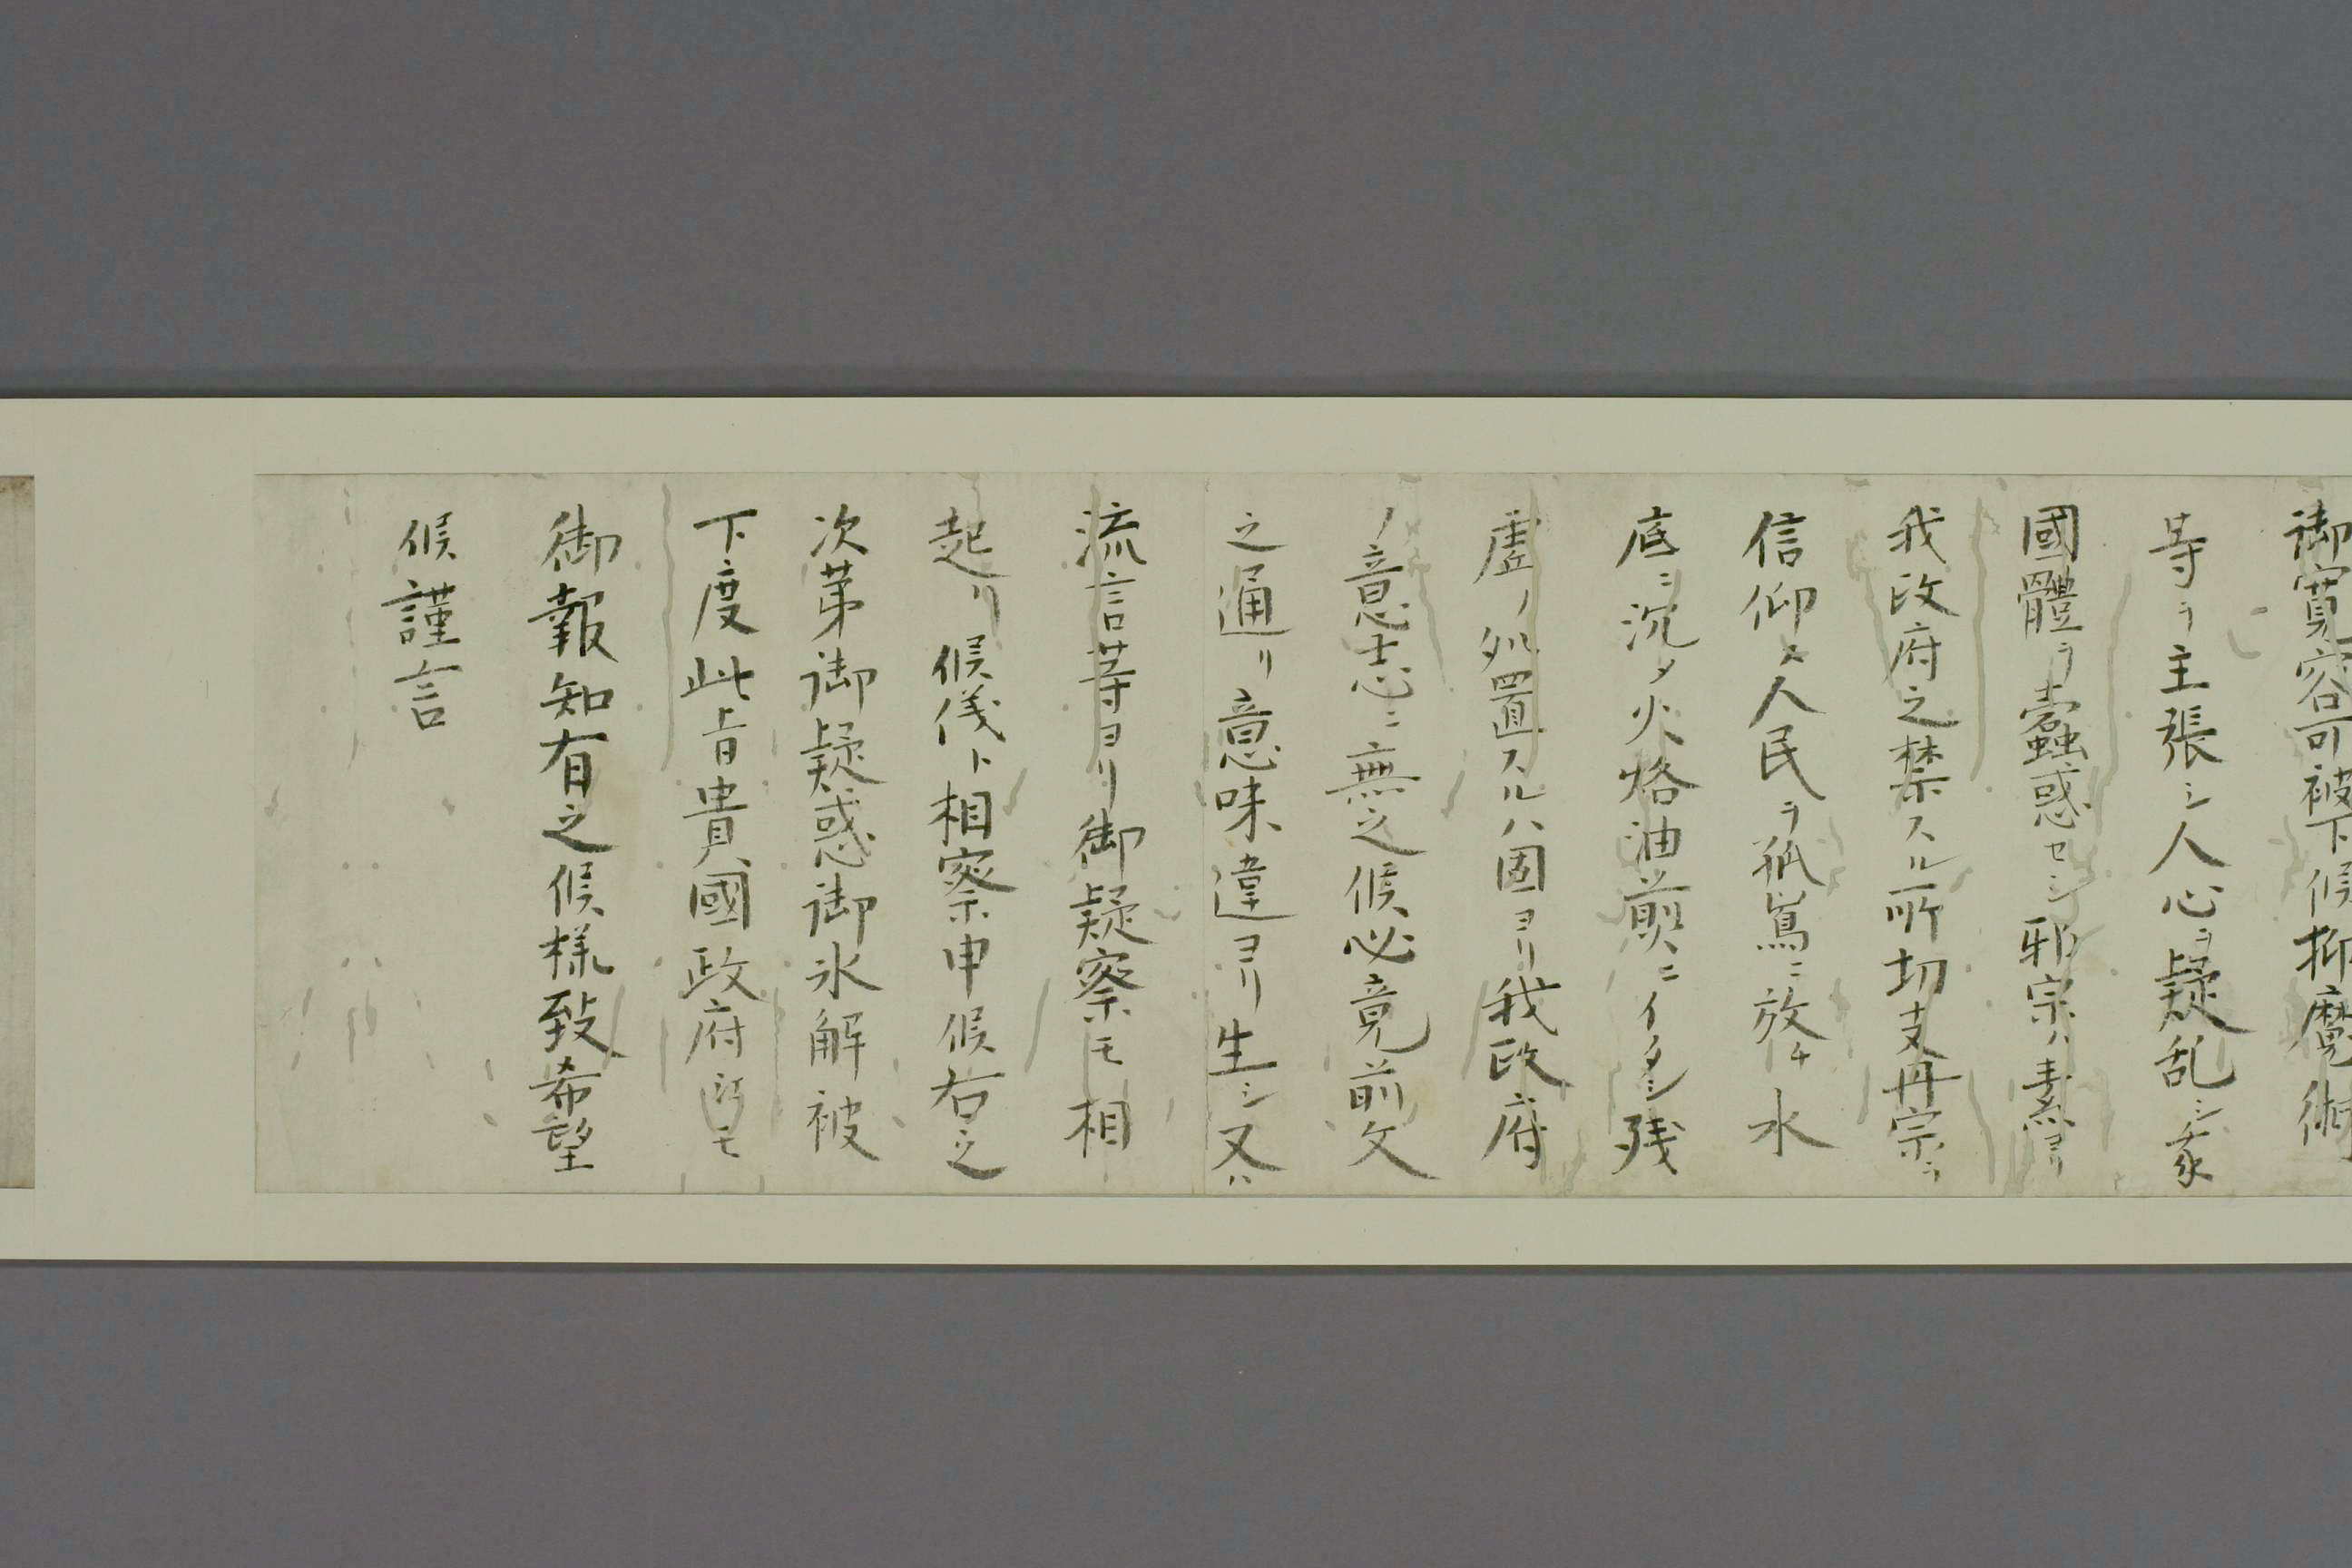 御寛容可被下候抑魔術
等ヲ主張シ人心ヲ疑乱シ家
國體ヲ蠱惑セシ邪宗ハ素ヨリ
我政府之禁スル所切支丹宗ヲ
信仰ノ人民ヲ孤嶌ニ放チ水
底ニ沉メ火烙油煎ニイタシ残
虐ノ処置スルハ固ヨリ我政府
ノ意志ニ無之候必竟前文
之通リ意味違ヨリ生シ又ハ
流言等ヨリ御疑察モ相
起リ候儀ト相察申候右之
次第御疑惑御氷解被
下度此旨貴國政府江モ
御報知有之候様致希望
候謹言